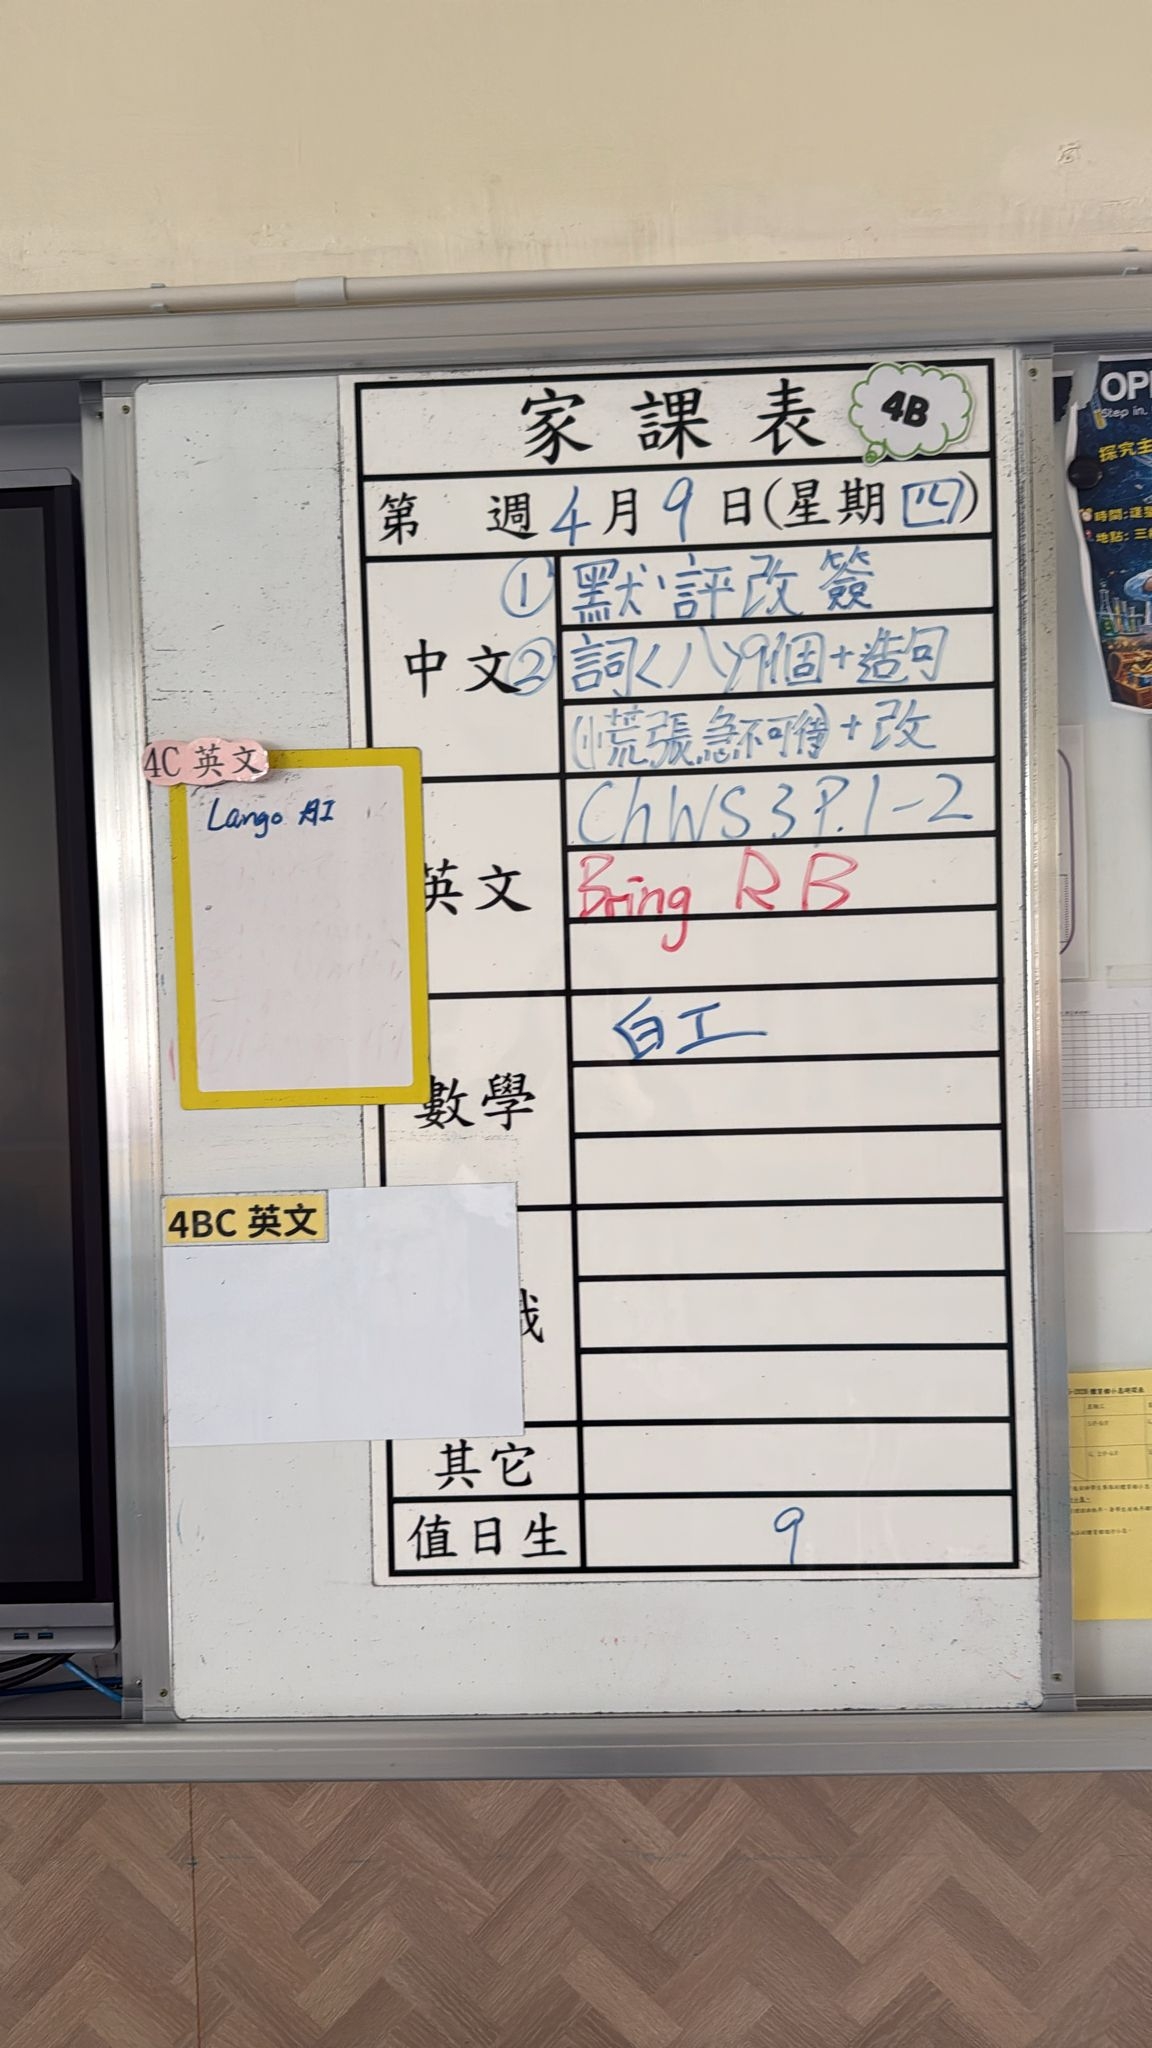 家課表 4B
第 週 4月9日(星期四)
中文
① 默·評改簽
② 詞<八>9個+造句
(慌張急不可待)+改
4C 英文
Lango AI
英文
Ch WS 3 P.1-2
Bring RB
數學
白工
4BC 英文
其它
值日生
9
OP
Step in.
探究主
時間:逢
地點:三